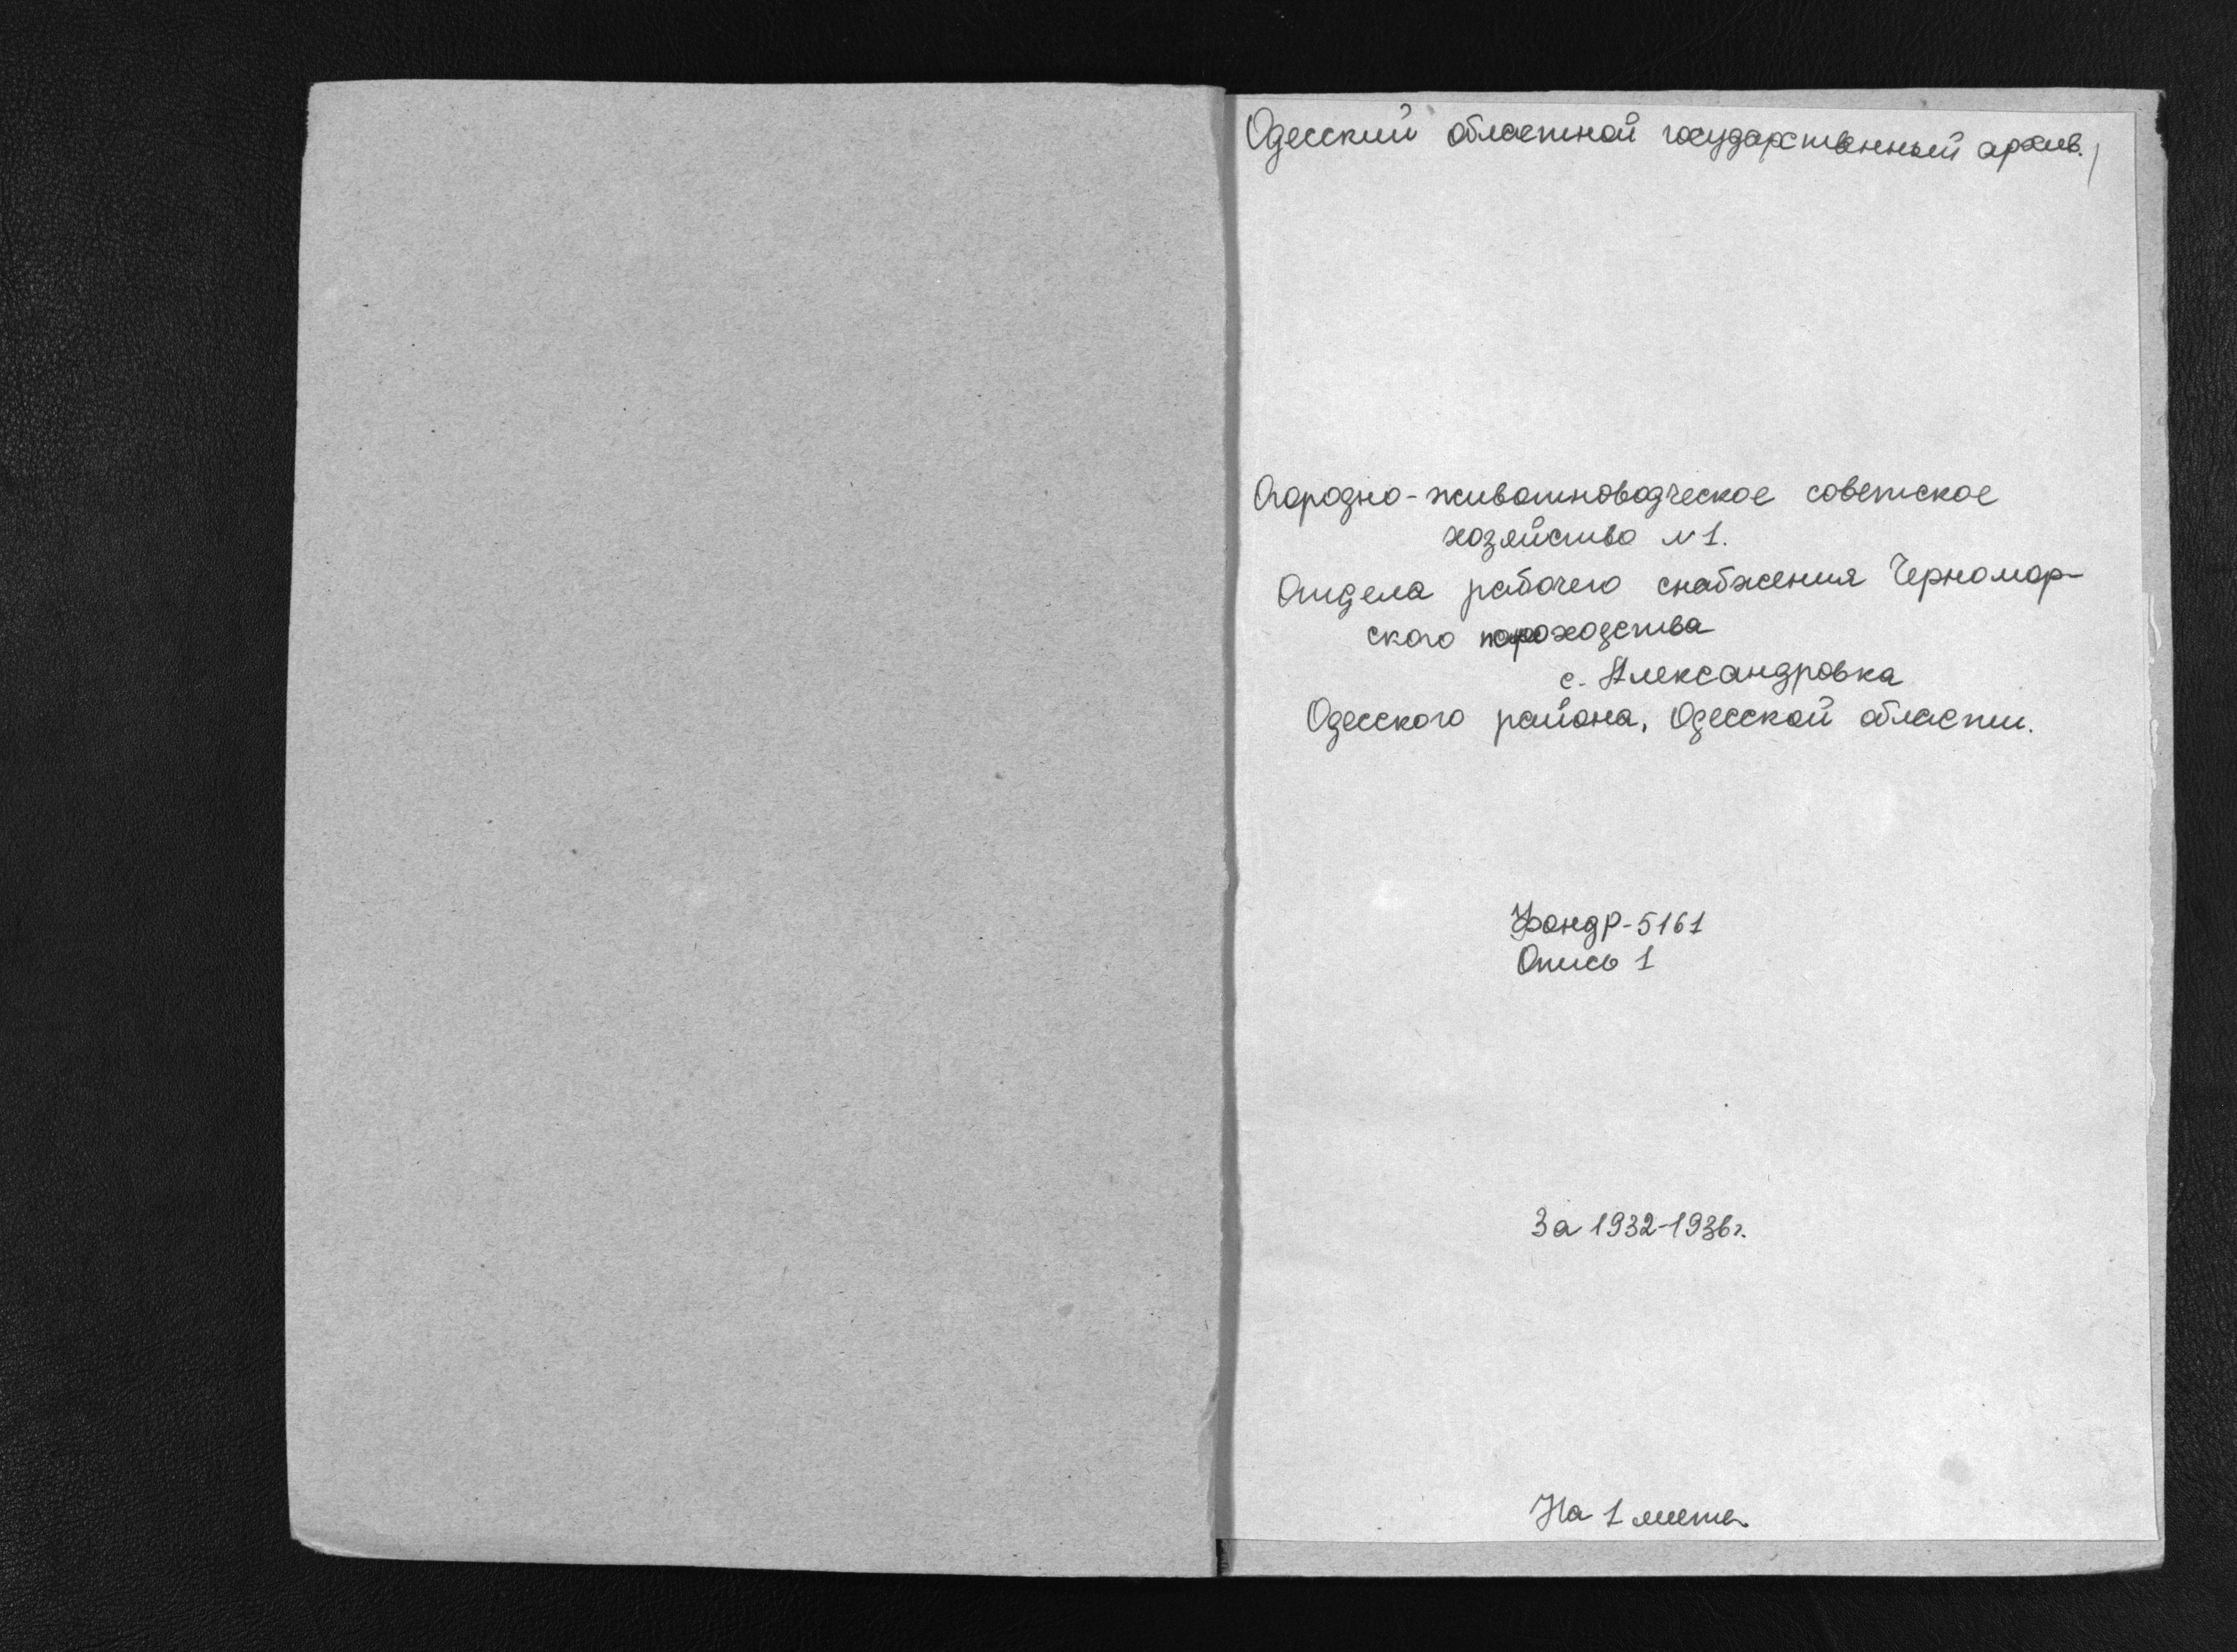 Одесский областной государственный архив.
Огородно-животноводческое советское
хозяйство N1.
Отдела рабочего снабжения Черномор-
ского пароходства
с. Александровка
Одесского района, Одесской области.
Фонд Р-5161
Опись 1
За 1932-1936г.
На 1 листе.